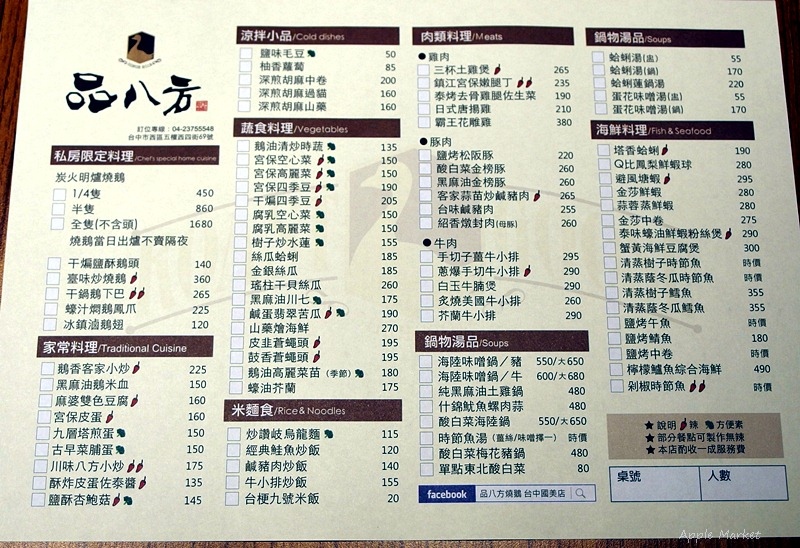 品八方
訂位專線：04-23755548
台中市西區五權西四街69號
私房限定料理/Chef's special home cuisine
炭火明爐燒鵝
1/4隻 450
半隻 860
全隻(不含頭) 1680
燒鵝當日出爐不賣隔夜
干煸鹽酥鵝頭 140
臺味炒燒鵝 360
干鍋鵝下巴 265
蠔汁燜鵝鳳爪 225
冰鎮滷鵝翅 120
家常料理/Traditional Cuisine
鵝香客家小炒 225
黑麻油鵝米血 150
麻婆雙色豆腐 160
宮保皮蛋 160
九層塔煎蛋 150
古早菜脯蛋 150
川味八方小炒 175
酥炸皮蛋佐泰醬 135
鹽酥杏鮑菇 145
涼拌小品/Cold dishes
鹽味毛豆 50
柚香蘿蔔 85
深煎胡麻中卷 200
深煎胡麻過貓 160
深煎胡麻山藥 160
蔬食料理/Vegetables
鵝油清炒時蔬 135
宮保空心菜 150
宮保高麗菜 150
宮保四季豆 190
干煸四季豆 205
腐乳空心菜 150
腐乳高麗菜 150
樹子炒水蓮 155
絲瓜蛤蜊 185
金銀絲瓜 185
瑤柱干貝絲瓜 260
黑麻油川七 175
鹹蛋翡翠苦瓜 190
山藥燴海鮮 270
皮韭蒼蠅頭 195
鼓香蒼蠅頭 195
鵝油高麗菜苗（季節） 180
蠔油芥蘭 175
米麵食/Rice＆Noodles
炒讚岐烏龍麵 115
經典鮭魚炒飯 120
鹹豬肉炒飯 140
牛小排炒飯 155
台梗九號米飯 20
肉類料理/Meats
●雞肉
三杯土雞煲 265
鎮江宮保嫩腿丁 235
泰烤去骨雞腿佐生菜 190
日式唐揚雞 210
霸王花雕雞 380
●豚肉
鹽烤松阪豚 220
酸白菜金榜豚 260
黑麻油金榜豚 260
客家蒜苗炒鹹豬肉 265
台味鹹豬肉 255
紹香燉封肉(母豚) 260
●牛肉
手切子薑牛小排 295
蔥爆手切牛小排 295
白玉牛腩煲 290
炙燒美國牛小排 260
芥蘭牛小排 290
鍋物湯品/Soups
海陸味噌鍋／豬 550/大650
海陸味噌鍋／牛 600/大680
純黑麻油土雞鍋 480
什錦魷魚螺肉蒜 480
酸白菜海陸鍋 550/大650
時節魚湯（薑絲/味噌擇一） 時價
酸白菜梅花豬鍋 480
單點東北酸白菜 80
facebook 品八方燒鵝 台中國美店
鍋物湯品/Soups
蛤蜊湯(盅) 55
蛤蜊湯(鍋) 170
蛤蜊蓮鍋湯 220
蛋花味噌湯(盅) 55
蛋花味噌湯(鍋) 170
海鮮料理/Fish＆Seafood
塔香蛤蜊 190
Q比鳳梨鮮蝦球 280
避風塘蝦 295
金莎鮮蝦 280
蒜蓉蒸鮮蝦 280
金莎中卷 275
泰味蠔油鮮蝦粉絲煲 290
蟹黃海鮮豆腐煲 300
清蒸樹子時節魚 時價
清蒸蔭冬瓜時節魚 時價
清蒸樹子鱈魚 355
清蒸蔭冬瓜鱈魚 355
鹽烤午魚 時價
鹽烤鯖魚 180
鹽烤中卷 時價
檸檬鱸魚綜合海鮮 490
剁椒時節魚 時價
★說明 辣 方便素
★部分餐點可製作無辣
★本店酌收一成服務費
桌號 人數
Apple Market